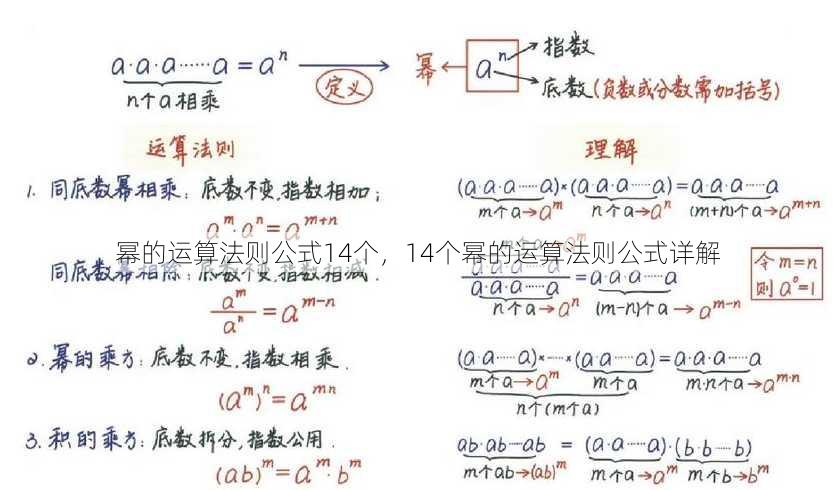 a·a·a……a=aⁿ
n个a相乘
定义
幂←aⁿ
指数
底数(负数或分数需加括号)
运算法则
理解
1. 同底数幂相乘：底数不变,指数相加；
aᵐ·aⁿ=aᵐ⁺ⁿ
(a·a·a……a)×(a·a·a……a)=a·a·a……a
m个a→aᵐ n个a→aⁿ (m+n)个a→aᵐ⁺ⁿ
幂的运算法则公式14个，14个幂的运算法则公式详解
同底数幂相除：底数不变,指数相减.
aᵐ/aⁿ=aᵐ⁻ⁿ
a·a·a……a/a·a·a……a=a·a·a……a
n个a→aⁿ (m-n)个a→aᵐ⁻ⁿ
令m=n
则a⁰=1
2. 幂的乘方：底数不变,指数相乘.
(aᵐ)ⁿ=aᵐⁿ
(a·a……a)×……×(a·a……a)=a·a·a……a
m个a→aᵐ m个a m·n个a→aᵐ·ⁿ
n个(m个a)
3. 积的乘方：底数拆分,指数公用.
(ab)ᵐ=aᵐ·bᵐ
ab·ab…ab = (a·a……a)·(b·b…b)
m个ab→(ab)ᵐ m个a→aᵐ m个b→bᵐ